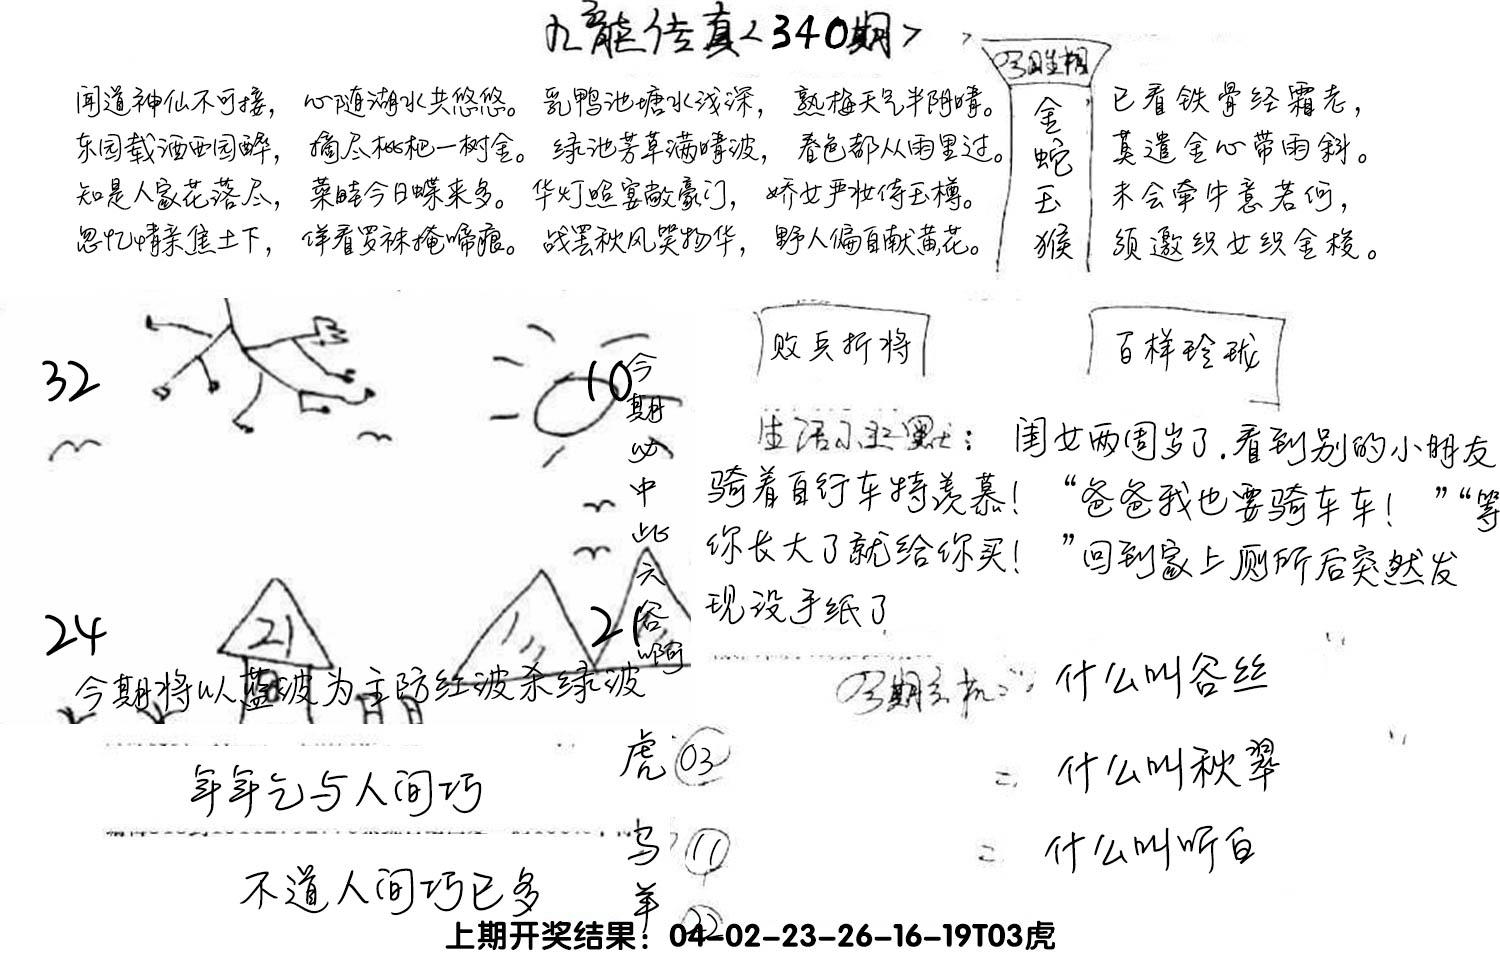 九龍传真<340期>
闻道神仙不可接，心随湖水共悠悠。乳鸭池塘水浅深，熟梅天气半阴晴。
东园载酒西园醉，摘尽枇杷一树金。绿池芳草满晴波，春色都从雨里过。
知是人家花落尽，菜畦今日蝶来多。华灯照宴敞豪门，娇女严妆侍玉樽。
忽忆情亲焦土下，佯看罗袜掩啼痕。战罢秋风笑物华，野人偏自献黄花。
金
蛇
玉
猴
已看铁骨经霜老，
莫遣金心带雨斜。
未会牵牛意若何，
须邀织女织金梭。
32
10
24
21
21
今期必中此六谷啊
今期将以蓝波为主防红波杀绿波
败兵折将
百样玲珑
生活小幽默：闺女两周岁了.看到别的小朋友
骑着自行车特羡慕！“爸爸我也要骑车车！”“等
你长大了就给你买！”回到家上厕所后突然发
现没手纸了
今期玄机
什么叫谷丝
二 什么叫秋翠
二 什么叫听白
年年乞与人间巧
不道人间巧已多
虎 03
鸟 11
羊 22
上期开奖结果：04-02-23-26-16-19T03虎